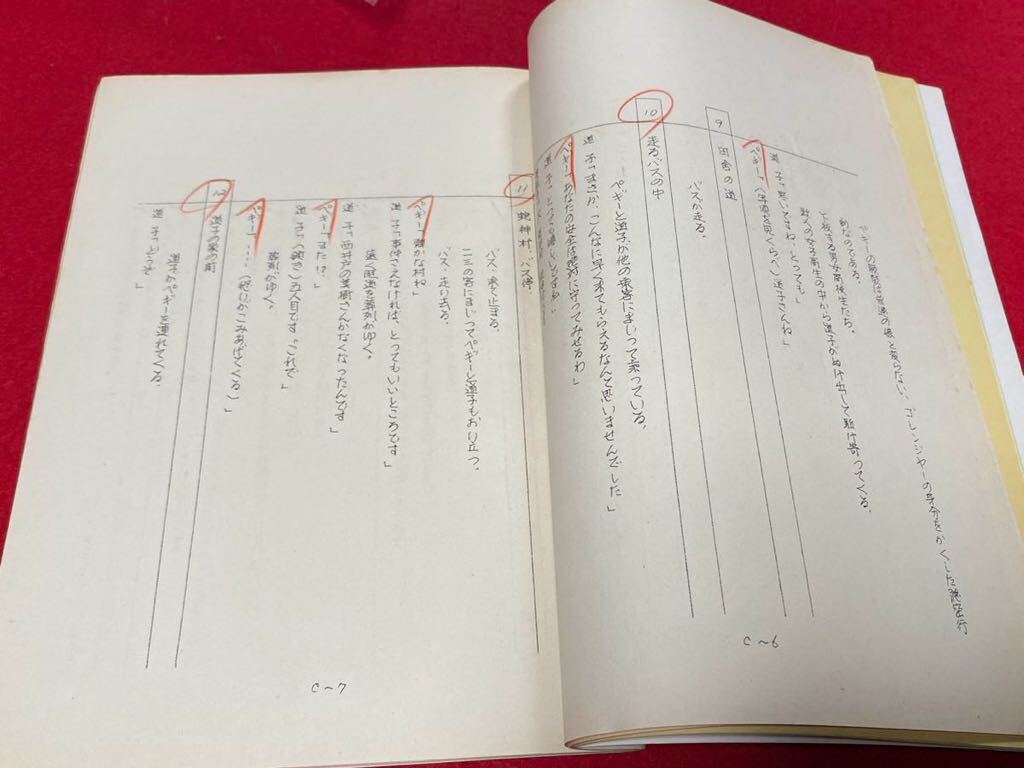 ペギーの服装は普通の娘と変らない、ゴレンジャーの身分をかくした隠密行
動なのである。
て授する男女高校生たち。
数人の女子高生の中から道子がぬけ出して駈け寄ってくる。
道子「寒いですね、とっても」
ペギー「(写真を見くらべ)道子さんね」
9 田舎の道
バスが走る。
10 走るバスの中
ペギーと道子が他の乗客にまじって乗っている。
道子「まさか、こんなに早く来てもらえるなんて思いませんでした」
ペギー「あなたの安全は絶対に守ってみせるわ」
道子「
C〜6
11 蛇神村・バス停
バス、来て止まる。
二三の客にまじってペギーと道子もおり立つ。
バス、走り去る。
ペギー「静かな村ね」
道子「事件さえなければ、とってもいいところです」
遠く畦道を葬列がゆく。
道子「西井戸の美樹さんがなくなったんです」
ペギー「また!?」
道子「(頷き)五人目です、これで」
葬列がゆく。
ペギー「……(怒りがこみあげてくる)」
12 道子の家の前
道子がペギーを連れてくる。
道子「どうぞ」
C〜7